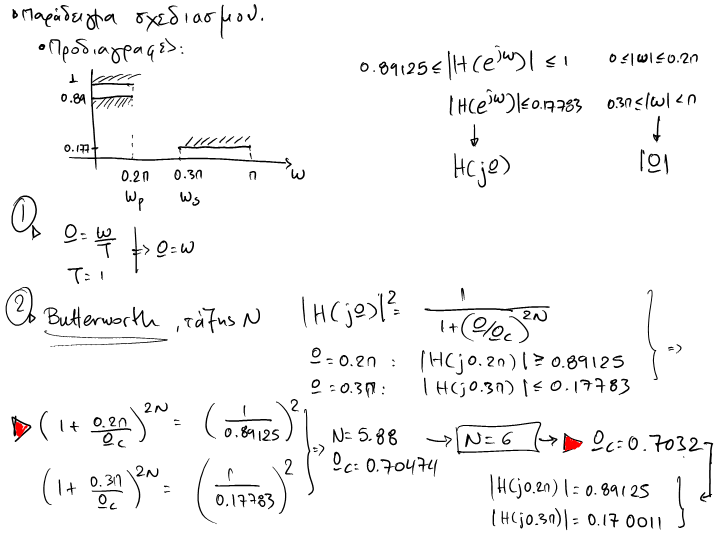 • Παράδειγμα σχεδιασμού.
• Προδιαγραφές:
0.89125 ≤ |H(e^{jω})| ≤ 1 0 ≤ |ω| ≤ 0.2π
|H(e^{jω})| ≤ 0.17783 0.3π ≤ |ω| < π
H(jΩ) |Ω|
1
0.89
0.177
0.2π 0.3π π ω
ωp ωs
①
Ω = ω/T ⇒ Ω = ω
T = 1
② Butterworth, τάξης N |H(jΩ)|² = 1/(1+(Ω/Ωc)^{2N})
Ω = 0.2π : |H(j0.2π)| ≥ 0.89125
Ω = 0.3π : |H(j0.3π)| ≤ 0.17783 ⇒
(1 + 0.2π/Ωc)^{2N} = (1/0.89125)²
(1 + 0.3π/Ωc)^{2N} = (1/0.17783)²
⇒ N = 5.88 → N = 6 → Ωc = 0.7032
Ωc = 0.70474
|H(j0.2π)| = 0.89125
|H(j0.3π)| = 0.170011